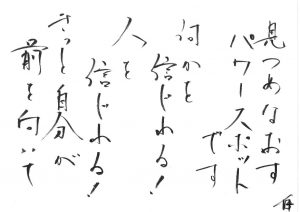 見つめなおす
パワースポット
です
何かを
信じれる!
人を
信じれる!
きっと自分が
前を向いて